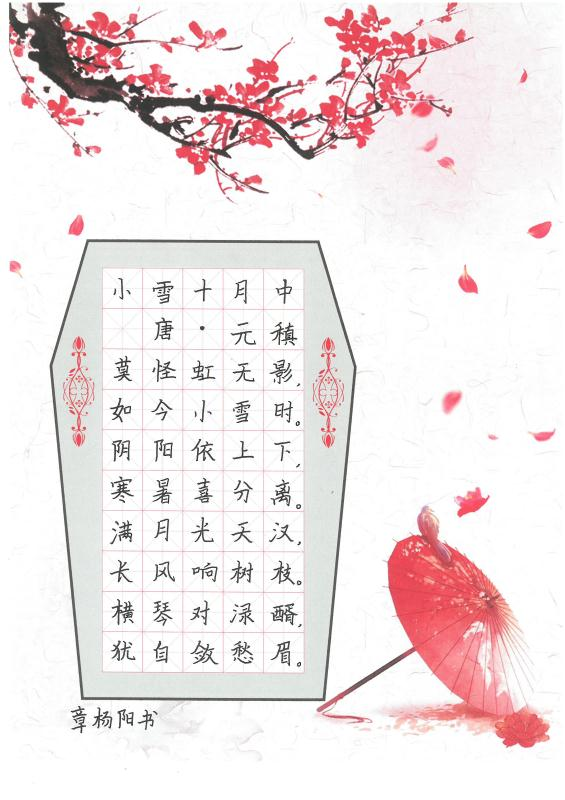 小雪十月中
唐·元稹
莫怪虹无影,
如今小雪时。
阴阳依上下,
寒暑喜分离。
满月光天汉,
长风响树枝。
横琴对渌醑,
犹自敛愁眉。
章杨阳书